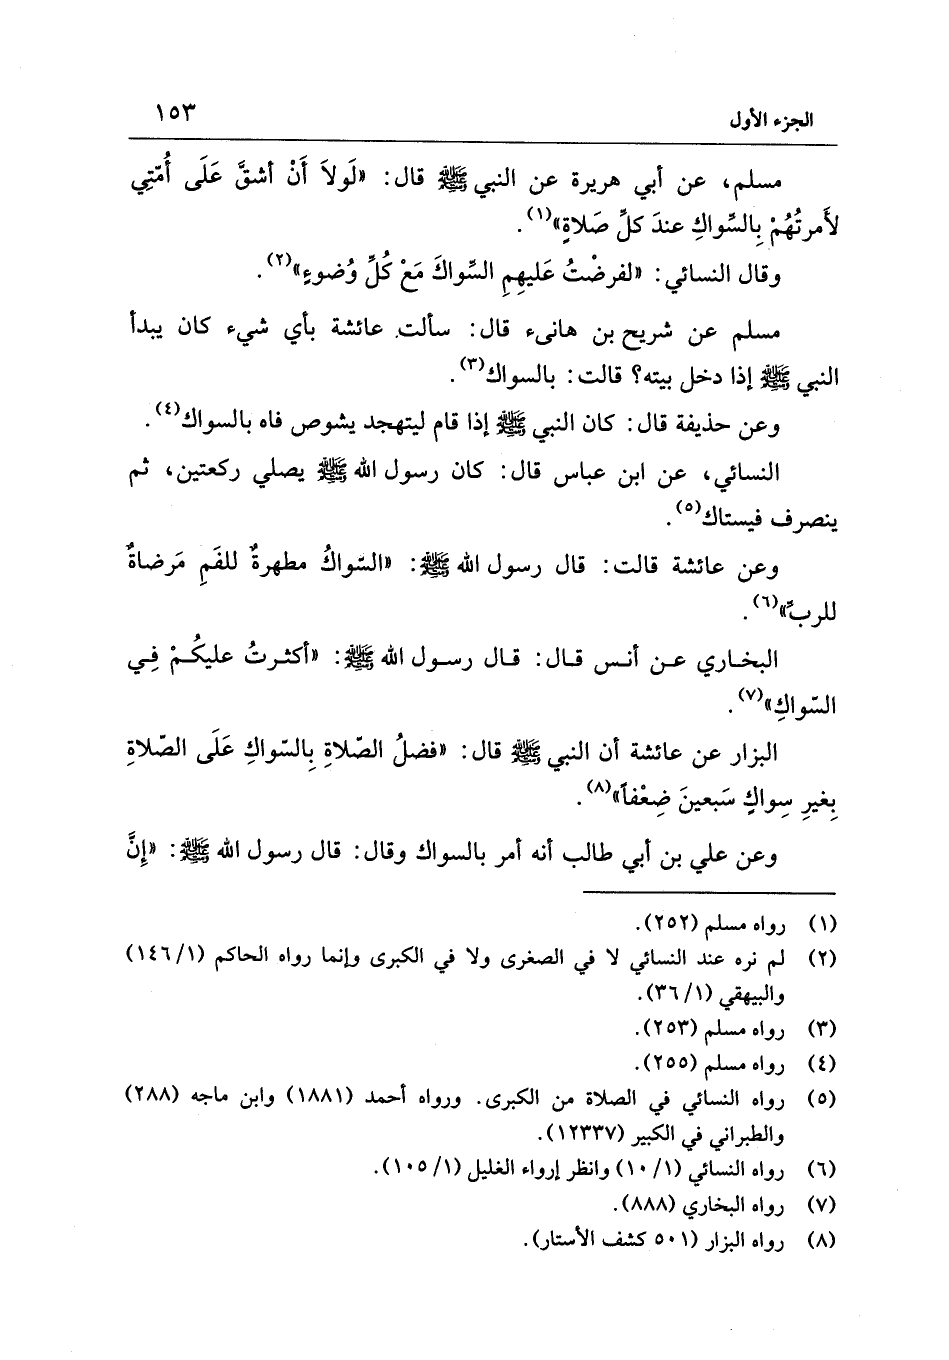 الجزء الأول ١٥٣
مسلم، عن أبي هريرة عن النبي ﷺ قال: «لَولاَ أَنْ أشقَّ عَلَى أُمّتِي
لأمرتُهُمْ بِالسِّواكِ عندَ كلِّ صَلاةٍ»(١).
وقال النسائي: «لفرضْتُ عَليهِمِ السِّواكَ مَعْ كُلِّ وُضوءٍ»(٢).
مسلم عن شريح بن هانىء قال: سألت عائشة بأي شيء كان يبدأ
النبي ﷺ إذا دخل بيته؟ قالت: بالسواك(٣).
وعن حذيفة قال: كان النبي ﷺ إذا قام ليتهجد يشوص فاه بالسواك(٤).
النسائي، عن ابن عباس قال: كان رسول الله ﷺ يصلي ركعتين، ثم
ينصرف فيستاك(٥).
وعن عائشة قالت: قال رسول الله ﷺ: «السّواكُ مطهرةٌ للفَمِ مَرضاةٌ
للربِّ»(٦).
البخاري عن أنس قال: قال رسول الله ﷺ: «أكثرتُ عليكُمْ فِي
السّواكِ»(٧).
البزار عن عائشة أن النبي ﷺ قال: «فضلُ الصّلاةِ بِالسّواكِ عَلَى الصّلاةِ
بِغيرِ سِواكٍ سَبعينَ ضِعْفاً»(٨).
وعن علي بن أبي طالب أنه أمر بالسواك وقال: قال رسول الله ﷺ: «إِنَّ
(١) رواه مسلم (٢٥٢).
(٢) لم نره عند النسائي لا في الصغرى ولا في الكبرى وإنما رواه الحاكم (١/١٤٦)
والبيهقي (١/٣٦).
(٣) رواه مسلم (٢٥٣).
(٤) رواه مسلم (٢٥٥).
(٥) رواه النسائي في الصلاة من الكبرى. ورواه أحمد (١٨٨١) وابن ماجه (٢٨٨)
والطبراني في الكبير (١٢٣٣٧).
(٦) رواه النسائي (١/١٠) وانظر إرواء الغليل (١/١٠٥).
(٧) رواه البخاري (٨٨٨).
(٨) رواه البزار (٥٠١ كشف الأستار).